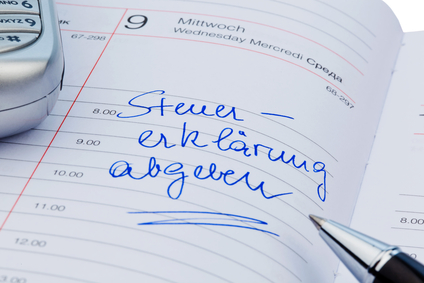 9 Mittwoch
Wednesday Mercredi Среда
67-298
68-297
8.00
Steuer-
9.00
erklärung
10.00
abgeben
11.00
12.00
8.00
9.00